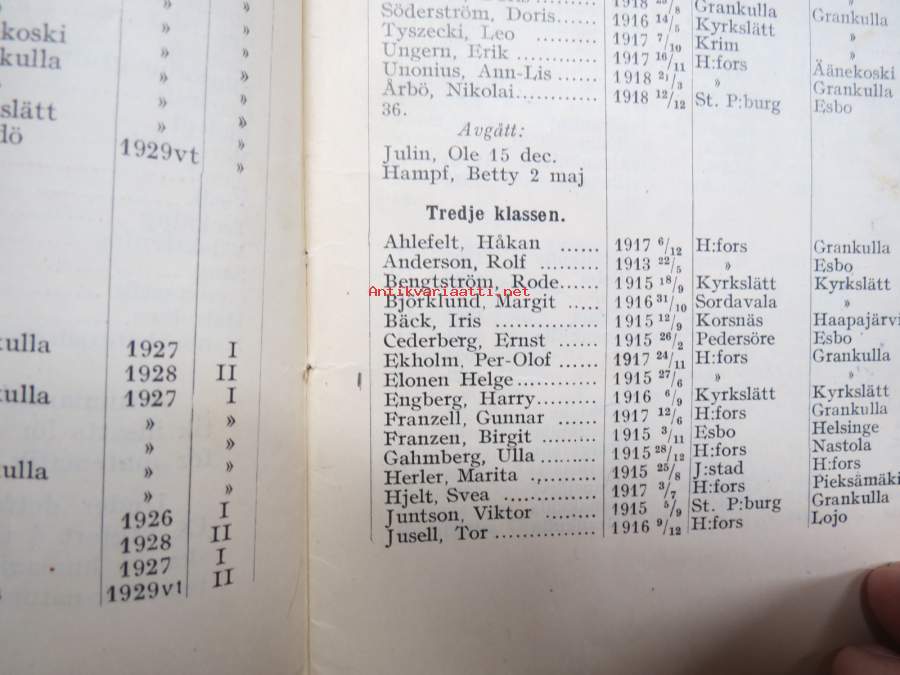 »
ekoski »
kulla »
»
slätt »
dö »
1929vt »
»
kulla 1927 I
1928 II
kulla 1927 I
» »
» »
kulla » »
» »
1926 I
1928 II
1927 I
1929vt II
1918 /8 Grankulla
Söderström, Doris ...... 1916 14/5 Kyrkslätt Grankulla
Tyszecki, Leo ......... 1917 7/10 Krim »
Ungern, Erik ............ 1917 16/11 H:fors »
Unonius, Ann-Lis ...... 1918 21/3 » Äänekoski
Årbö, Nikolai............ 1918 12/12 St. P:burg Grankulla
36. Esbo
Avgått:
Julin, Ole 15 dec.
Hampf, Betty 2 maj
Tredje klassen.
Ahlefelt, Håkan ...... 1917 6/12 H:fors Grankulla
Anderson, Rolf ......... 1913 22/5 » Esbo
Bengtström, Rode...... 1915 18/9 Kyrkslätt Kyrkslätt
Antikvariaatti.net
Björklund, Margit ..... 1916 31/10 Sordavala »
Bäck, Iris ............... 1915 12/9 Korsnäs Haapajärvi
Cederberg, Ernst ...... 1915 26/2 Pedersöre Esbo
Ekholm, Per-Olof ...... 1917 24/11 H:fors Grankulla
Elonen Helge............ 1915 27/6 » »
Engberg, Harry......... 1916 6/9 Kyrkslätt Kyrkslätt
Franzell, Gunnar ...... 1917 12/6 H:fors Grankulla
Franzen, Birgit ......... 1915 3/11 Esbo Helsinge
Gahmberg, Ulla ......... 1915 28/12 H:fors Nastola
Herler, Marita ......... 1915 25/8 J:stad H:fors
Hjelt, Svea ............ 1917 3/7 H:fors Pieksämäki
Juntson, Viktor ......... 1915 5/9 St. P:burg Grankulla
Jusell, Tor ............... 1916 9/12 H:fors Lojo